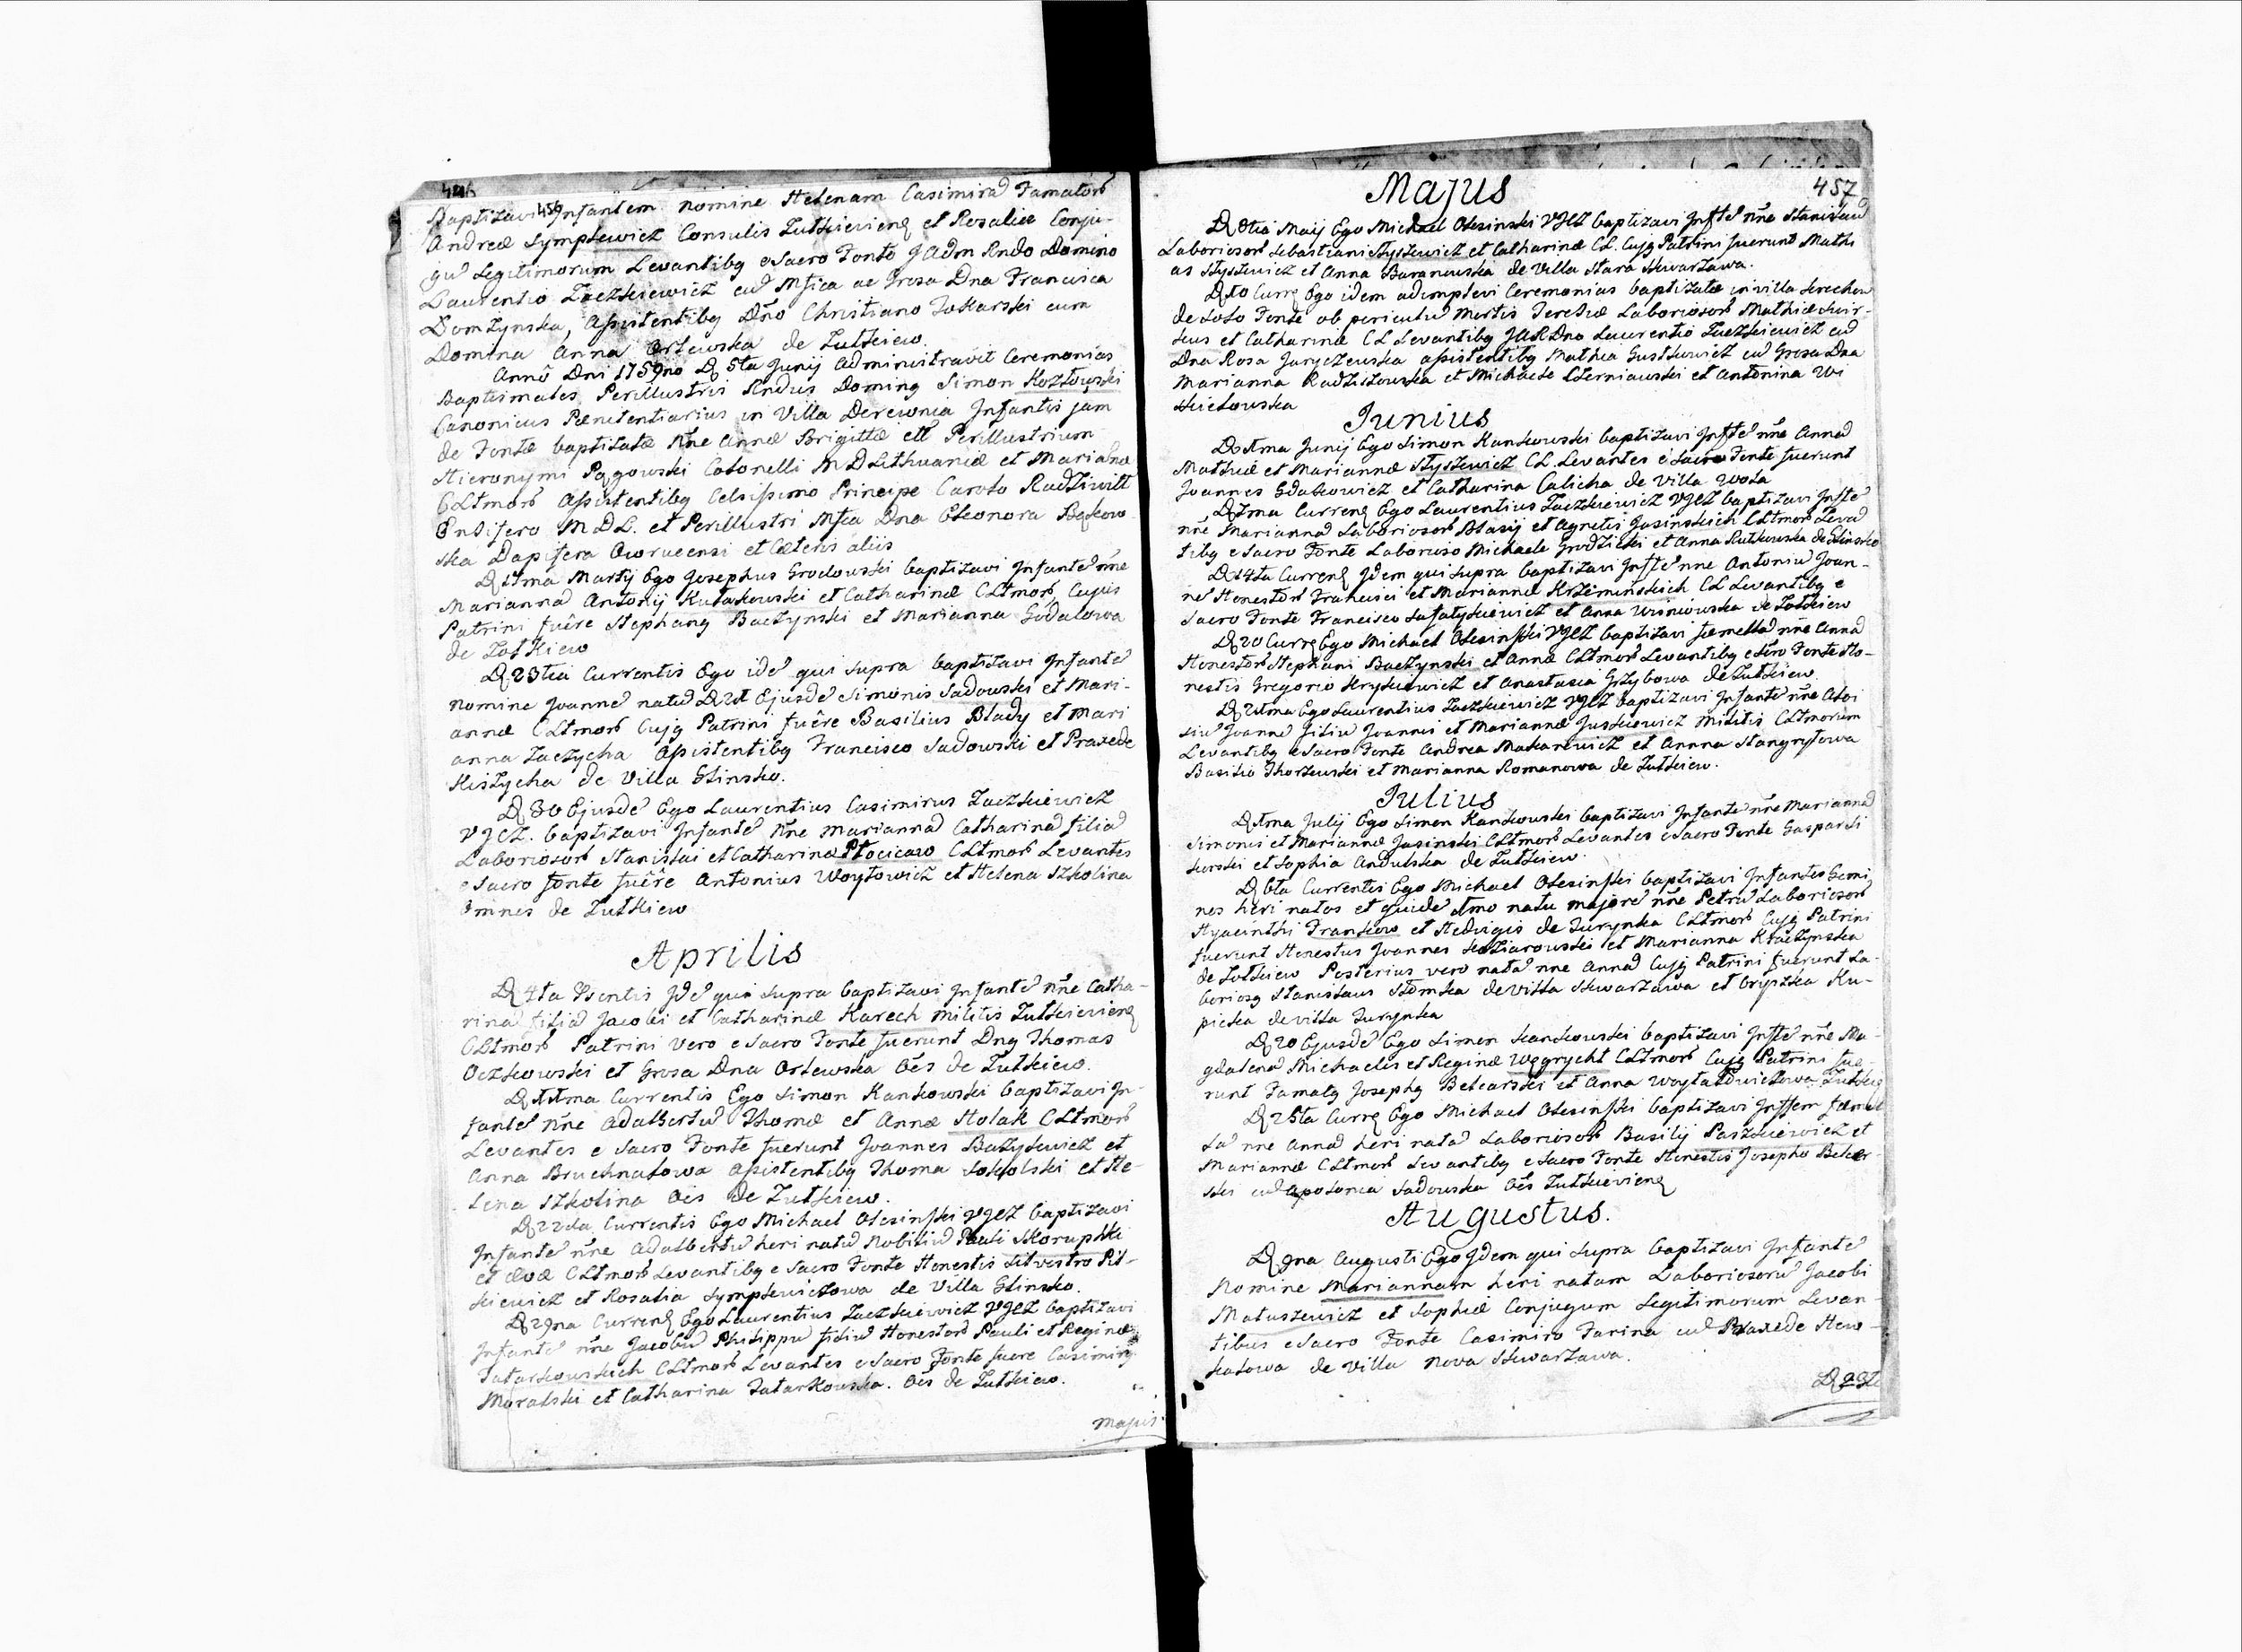 456
Baptizavi Infantem nomine Helenam Casimirã Famatorũ
Andreæ Sympkewicz Consulis Zułkievienę et Rosaliæ Conju-
gũ Legitimorum Levantibg e Sacro Fonte JAdm Rndo Domino
Laurentio Zaczkiewicz cũ Mfica ac Grosa Dna Francisca
Domżynska, Assistentibg Dno Christiano Tokarski cum
Domina Anna Orlewska de Zułkiew.
Anno Dni 1759no D 5ta Junij Administravit Ceremonias
Baptismales Perillustris Rndus Doming Simon Kozłowski
Canonicus Pænitentiarius in Villa Derewnia Infantis jam
de Fonte baptizatæ nne Annæ Brigittæ ett Perillustrium
Hieronymi Pągowski Colonelli M D Lithuaniæ et Mariañæ
CLtmorũ Assistentibg Celsissimo Principe Carolo Radziwiłł
Ensifero M D L. et Perillustri Mfica Dna Eleonora
ska Dapifera Owrucensi et Cæteris aliis
D 17ma Martij Ego Josephus Grodowski baptizavi Infantẽ nne
Mariannã Antonij Kułakowski et Catharinæ CLtmorũ, Cujus
Patrini fuêre Stephang Baczynski et Marianna Godalowa
de Żołkiew
D 23tia Currentis Ego idẽ qui supra baptizavi Infantẽ
nomine Joannẽ natũ D 21 Ejusdẽ Simonis Sadowski et Mari-
annæ CLtmorũ Cujg Patrini fuêre Basilius Blady et Mari
anna Zaczycha Assistentibg Francisco Sadowski et Praxede
Kiszycha de Villa Glinsko.
D 30 Ejusdẽ Ego Laurentius Casimirus Zaczkiewicz
VJCZ. baptizavi Infantẽ nne Mariannã Catharinã filiã
Laboriosorũ Stanislai et Catharinæ Płocicaw CLtmorũ Levantes
e Sacro fonte fuêre Antonius Woytowicz et Helena Szkolina
Omnes de Zułkiew
Aprilis
D 4ta Psentis Idẽ qui supra baptizavi Infantẽ nne Catha-
rinã filiã Jacobi et Catharinæ Karech militis Zułkievienę
CLtmorũ Patrini vero e Sacro Fonte fuerunt Dng Thomas
Oczkowski et Grosa Dna Orlewska Oẽs de Zułkiew.
D 11ma Currentis Ego Simon Kankowski baptizavi In-
fantẽ nne Adalbertũ Thomæ et Annæ Holak CLtmorũ
Levantes e Sacro Fonte fuerunt Joannes Bazylewicz et
Anna Bruchnalowa Assistentibg Thoma Sokolski et He-
lena Szkolina Oẽs de Zułkiew.
D 22da Currentis Ego Michael Olesinski VJCZ baptizavi
Infantẽ nne Adalbertũ heri natũ Nobiliũ Pauli Skorupski
et Evæ CLtmorũ Levantibg e Sacro Fonte Honestis Silvestro Pil-
kiewicz et Rosalia Sympkewiczowa de Villa Glinsko.
D 29na Currenę Ego Laurentius Zaczkiewicz VJCZ baptizavi
Infantẽ nne Jacobũ Philippũ filiũ Honestorũ Pauli et Reginæ
Tatarkowskich CLtmorũ Levantes e Sacro Fonte fuere Casimirg
Moralski et Catharina Tatarkowska. Oẽs de Zułkiew.
Majus
457
Majus
D 3tia Maij Ego Michael Olesinski VJCZ baptizavi Inftẽ nne Stanislaũ
Laboriosorũ Sebastiani Styszewicz et Catharinæ CL. Cujg Patrini fuerunt Mathi
as Styszewicz et Anna Baranowska de Villa Stara Skwarzawa.
D 10 Currę Ego idem adimplevi Ceremonias baptizatæ in villa Sorechow
de Solo Fonte ob periculũ Mortis Teresiæ Laboriosorũ Mathiæ Swir-
kus et Catharinæ CL Levantibg JARDno Laurentio Zaczkiewicz cũ
Dna Rosa Jaryczewska assistentibg Mathia Gustkiewicz cũ Grosa Dna
Marianna Radziszowska et Michaele Czerniawski et Antonina Wi
Junius
D 1ma Junij Ego Simon Kankowski baptizavi Inftẽ nne Annã
Mathiæ et Mariannæ Styszewicz CL. Levantes e Sacro Fonte fuerunt
Joannes Gdakowicz et Catharina Calicha de Villa Wola
D 7ma Currenę Ego Laurentius Zaczkiewicz VJCZ baptizavi Inftẽ
nne Mariannã Laboriosorũ Blasij et Agnetis Jasinskich CLtmorũ Levã
tibg e Sacro Fonte Laborioso Michaele Grodzicki et Anna Rutkowska de Glinsko
D 14ta Currenę Idem qui supra baptizavi Inftẽ nne Antoniũ Joan-
nẽ Honestorũ Francisci et Mariannæ Krzeminskich CL Levantibg e
Sacro Fonte Francisco Safatykiewicz et Anna Wisniowska de Żołkiew
D 20 Currę Ego Michael Olesinski VJCZ baptizavi fæmellã nne Annã
Honestorũ Stephani Baczynski et Annæ CLtmorũ Levantibg e Scro Fonte Ho-
nestis Gregorio Hrykiewicz et Anastasia Grzybowa de Zułkiew.
D 21ma Ego Laurentius Zaczkiewicz VJCZ baptizavi Infantẽ nne Aloi
siũ Joannẽ filiũ Joannis et Mariannæ Juskiewicz Militis CLtmorum
Levantibg e Sacro Fonte Andrea Makarewicz et Annna Stangrytowa
Basilio Thorzewski et Marianna Romanowa de Zułkiew.
Julius
D 1ma Julij Ego Simon Kankowski baptizavi Infantẽ nne Mariannã
Simonis et Mariannæ Jasinski CLtmorũ Levantes e Sacro Fonte Gaspar Si
korski et Sophia Andulska de Zułkiew.
D 6ta Currentis Ego Michael Olesinski baptizavi Infantes Gemi
nos heri natos et quidẽ 1mo natu majorẽ nne Petrũ Laboriosorũ
Hyacinthi Frankow et Hedvigis de Turynka CLtmorũ Cujg Patrini
fuerunt Honestus Joannes Koziarowski et Marianna Kraczynska
de Żołkiew Posterius vero natã nne Annã Cujg Patrini fuerunt La-
boriosg Stanislaus Słomka de villa Skwarzawa et Oryszka Ku-
picka de villa Turynka
D 20 Ejusdẽ Ego Simon Kankowski baptizavi Inftẽ nne Ma-
gdalenã Michaelis et Reginæ Węgrycht CLtmorũ Cujg Patrini fue-
runt Famatg Josephg Bekarski et Anna Zułkię
D 25ta Currę Ego Michael Olesinski baptizavi Inftem fæmel
lã nne Annã heri natã Laboriosorũ Basilij Paszkiewicz et
Mariannæ CLtmorũ Levantibg e Sacro Fonte Honestis Josepho Beker-
ski cũ Apolonia Sadowska Oẽs Zułkievienę
Augustus.
D 9na Augusti Ego Idem qui supra baptizavi Infantẽ
Nomine Mariannam heri natam Laboriosorũ Jacobi
Matuszewicz et Sophiæ Conjugum Legitimorum Levan-
tibus e Sacro Fonte Casimiro Farina cũ Praxede Hew-
kalowa de Villa Nova Skwarzawa.